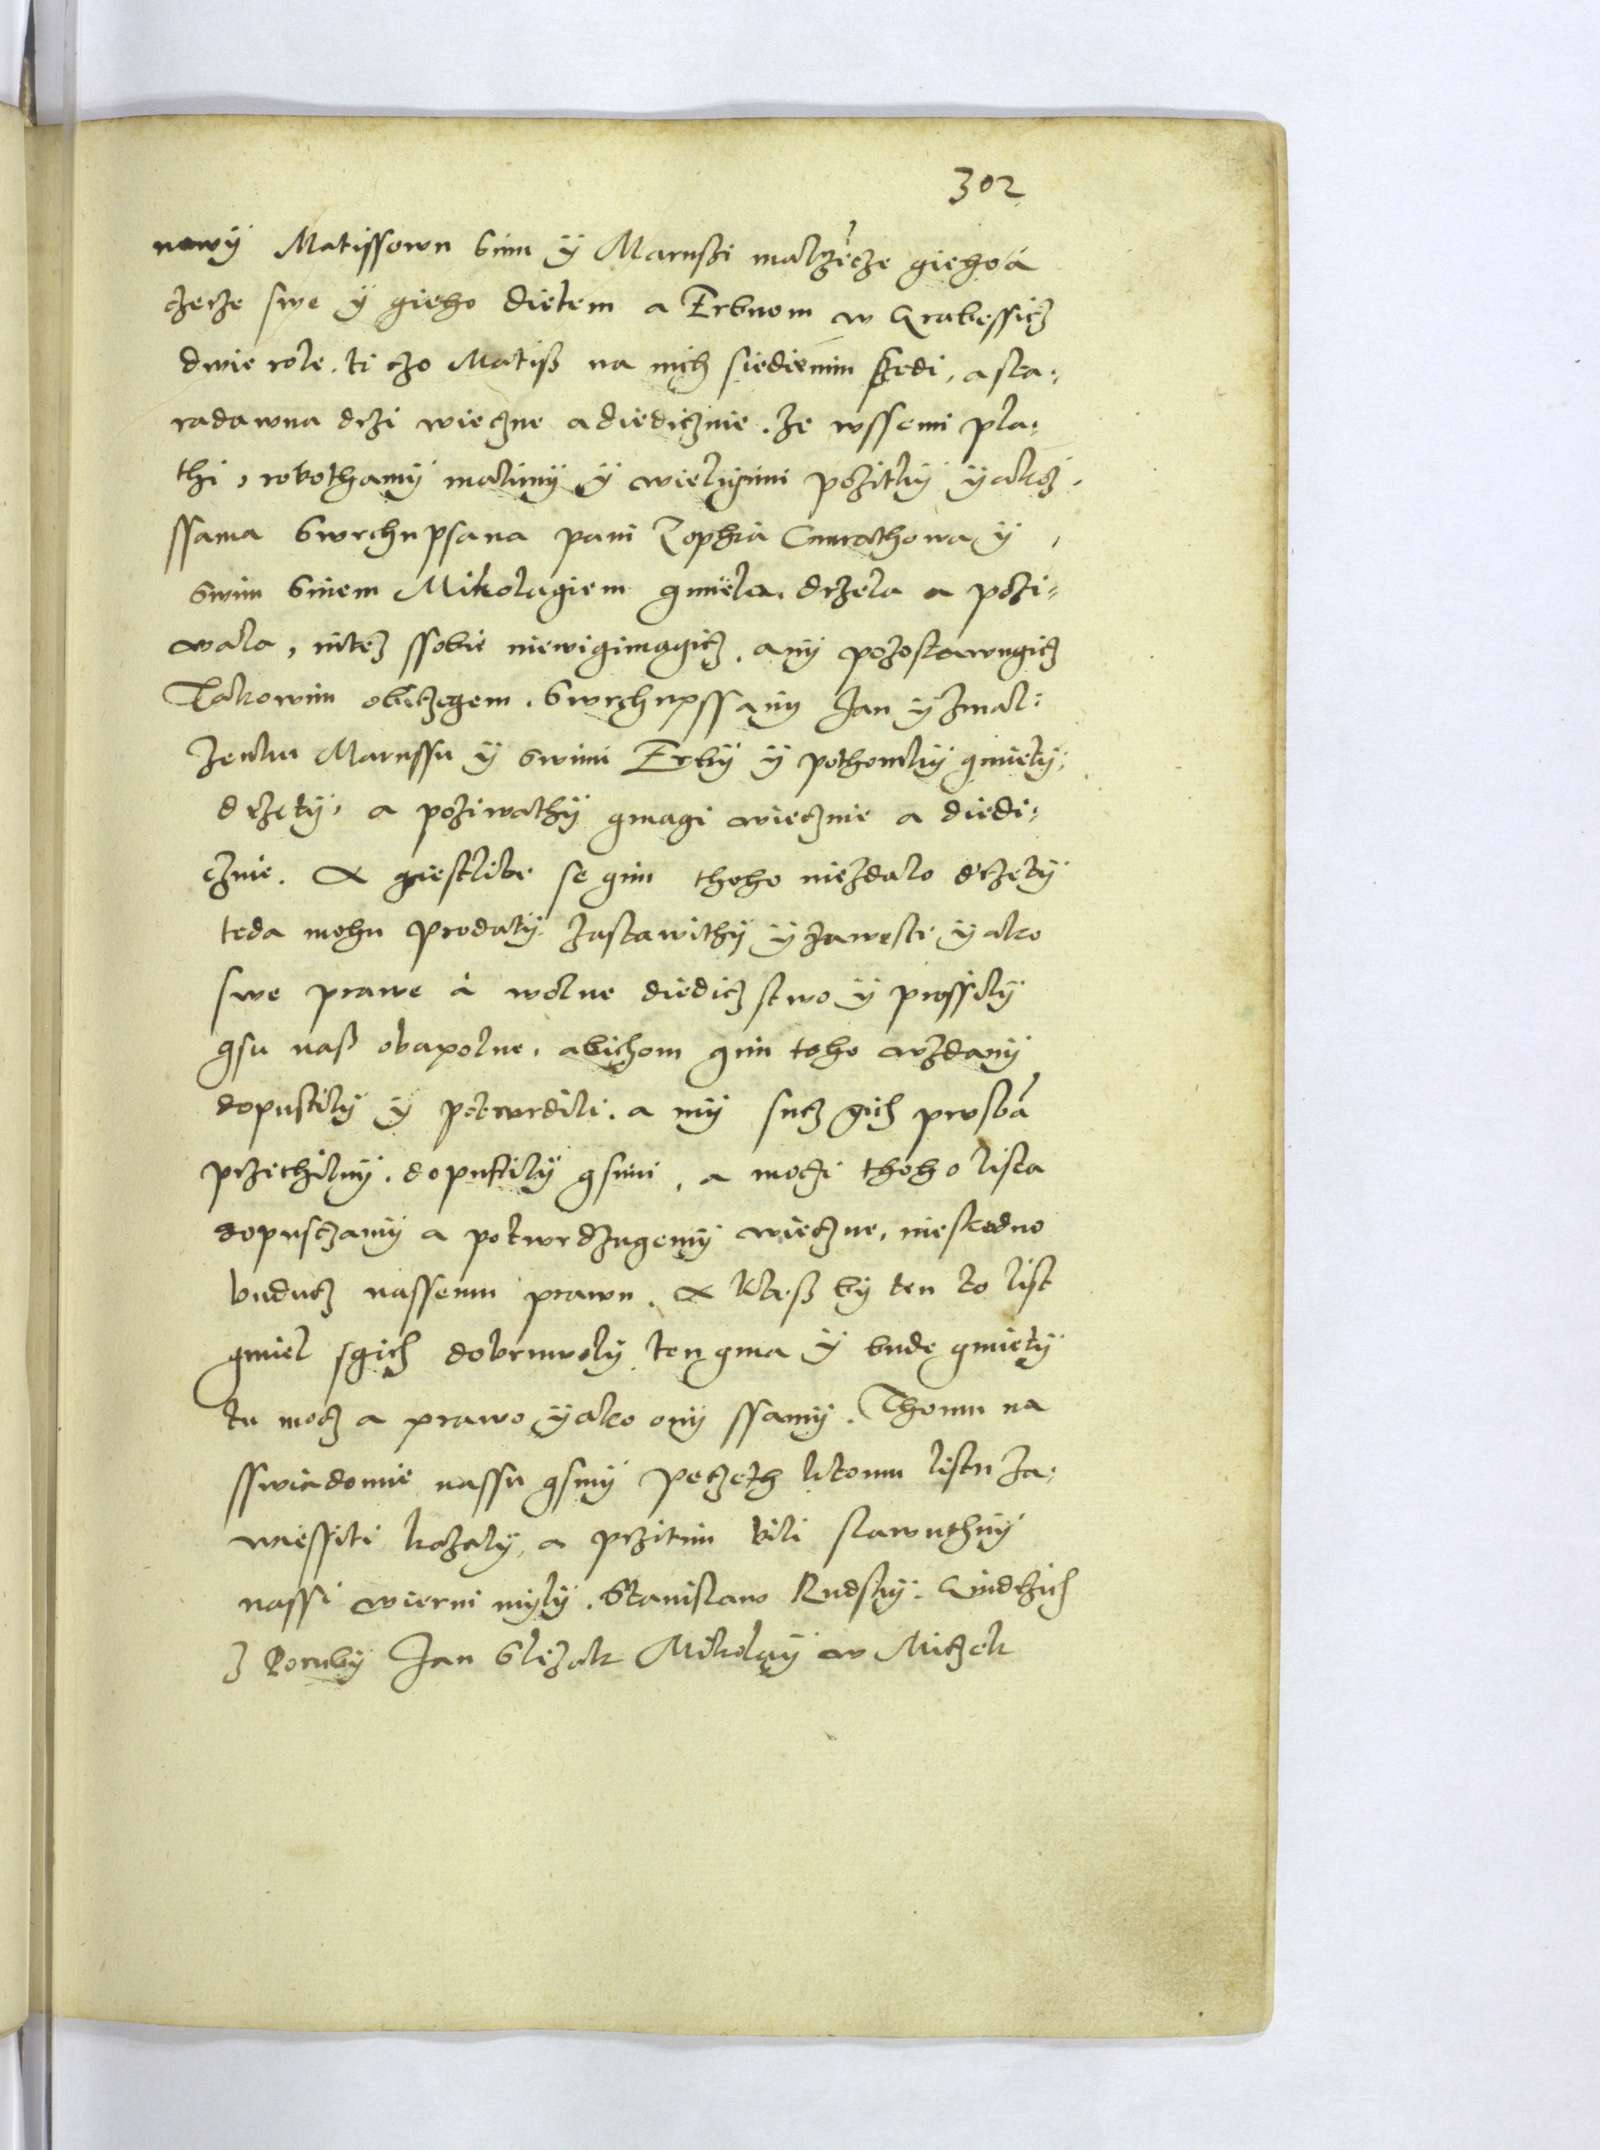 302
nowy Matissowu Sinu y Marussi malzecze gieho a
czerze swe y gieho dietem a Erbuom w Hrabessicz
dwie role. ti czo Matiss na nich siedienim siedi, a sta:
radawna drzi wieczne a diedicznie. ze wssemi pla:
thi, robothamy malimy y wielgimi pozitky yakoz
ssama Swrchupsana pani Zophia Cunrathowa y
Swim Sinem Mikolagiem gmiela. drzela a pozi:
wala, nitcz ssobie niewigimagicz. any pozostawugicz
Takowim obiczegem. Swrchupssany Jan y z mal:
zenku Marussu y Swimi Erby y pothomky gmiety,
drzety, a poziwathy gmagi wiecznie a diedi:
cznie. A giestlibe se gim thoho niezdalo drzety
teda mohu prodaty zastawithy y zawesti yako
swe prawe a wolne diediczstwo y prossily
gsu nass obapolne. abichom gim toho wzdany
dopustily y potwrdili. a my sucz gich prosba
przichilny. dopustily gsmi, a moczi thoho lista
dopusczamy a potwrdzugemy wieczne. niesscodno
buducz nassemu prawu. A ktoss by ten to list
gmiel s gich dobruwoly ten gma y bude gmiety
tu mocz a prawo yako ony ssamy. Thomu na
sswiadomie nassu gsmy peczeth ktomu listu za:
wiessiti kazaly, a przitim bili slawuthny
nassi wierni myly. Stanislaw Rudsky. Hindrzich
z Poruby Jan Slezak Mikolay w Miczek